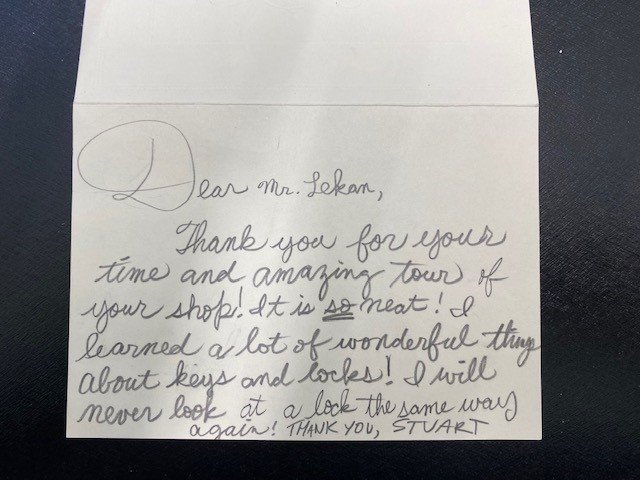 Dear Mr. Lekan,
Thank you for your
time and amazing tour of
your shop! It is so neat! I
learned a lot of wonderful things
about keys and locks! I will
never look at a lock the same way
again! THANK YOU, STUART